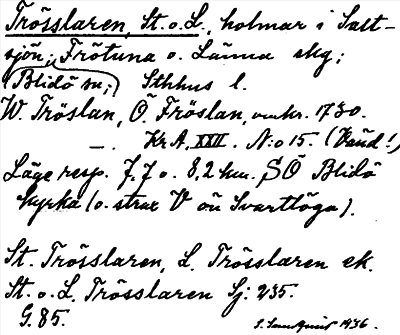 Trösslaren, St. o. L., holmar i Salt-
sjön; Frötuna o. Länna skg;
(Blidö sn;) Sthhus l.
W. Tröslan, Ö. Fröslan, omkr. 1730.
—. Kr A. XXII. N:o 15. (Vänd!)
Läge resp. 7,7 o. 8,2 km. SÖ Blidö
kyrka (o. strax V on Svartlöga).
St. Trösslaren, L. Trösslaren ek.
St. o. L. Trösslaren Sj: 235.
G. 85.
1936.